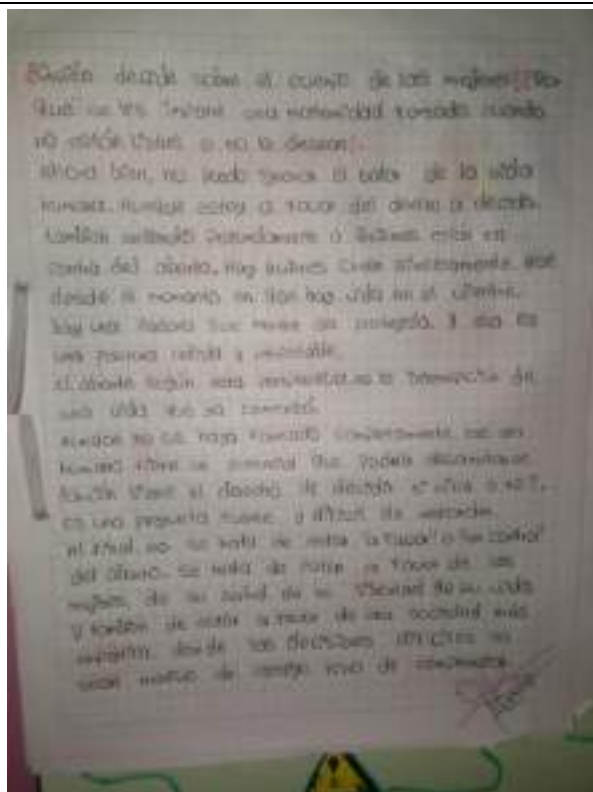 ¿Quién decide sobre el cuerpo de las mujeres? ¿Por
qué se les impone una maternidad forzada cuando
no están listas o no lo desean?.
Ahora bien, no puedo ignorar el valor de la vida
humana. Aunque estoy a favor del derecho a decidir,
también entiendo profundamente a quienes están en
contra del aborto. Hay quienes creen que
desde el momento en que hay vida en el vientre,
hay una que merece ser protegida. Y esa es
una postura válida y respetable.
El aborto según esta es la de
una vida que ya comenzó.
Aunque no se haya formado completamente ese ser
humano tiene un potencial que
también tiene el derecho de decidir si vive o no?.
es una pregunta fuerte y difícil de responder.
Al final no se trata de estar "a favor" o "en contra"
del aborto. Se trata de estar a favor de las
mujeres de su salud de su libertad de su vida
Y también de estar a favor de una sociedad más
donde las decisiones difíciles no
sean motivo de castigo sino de